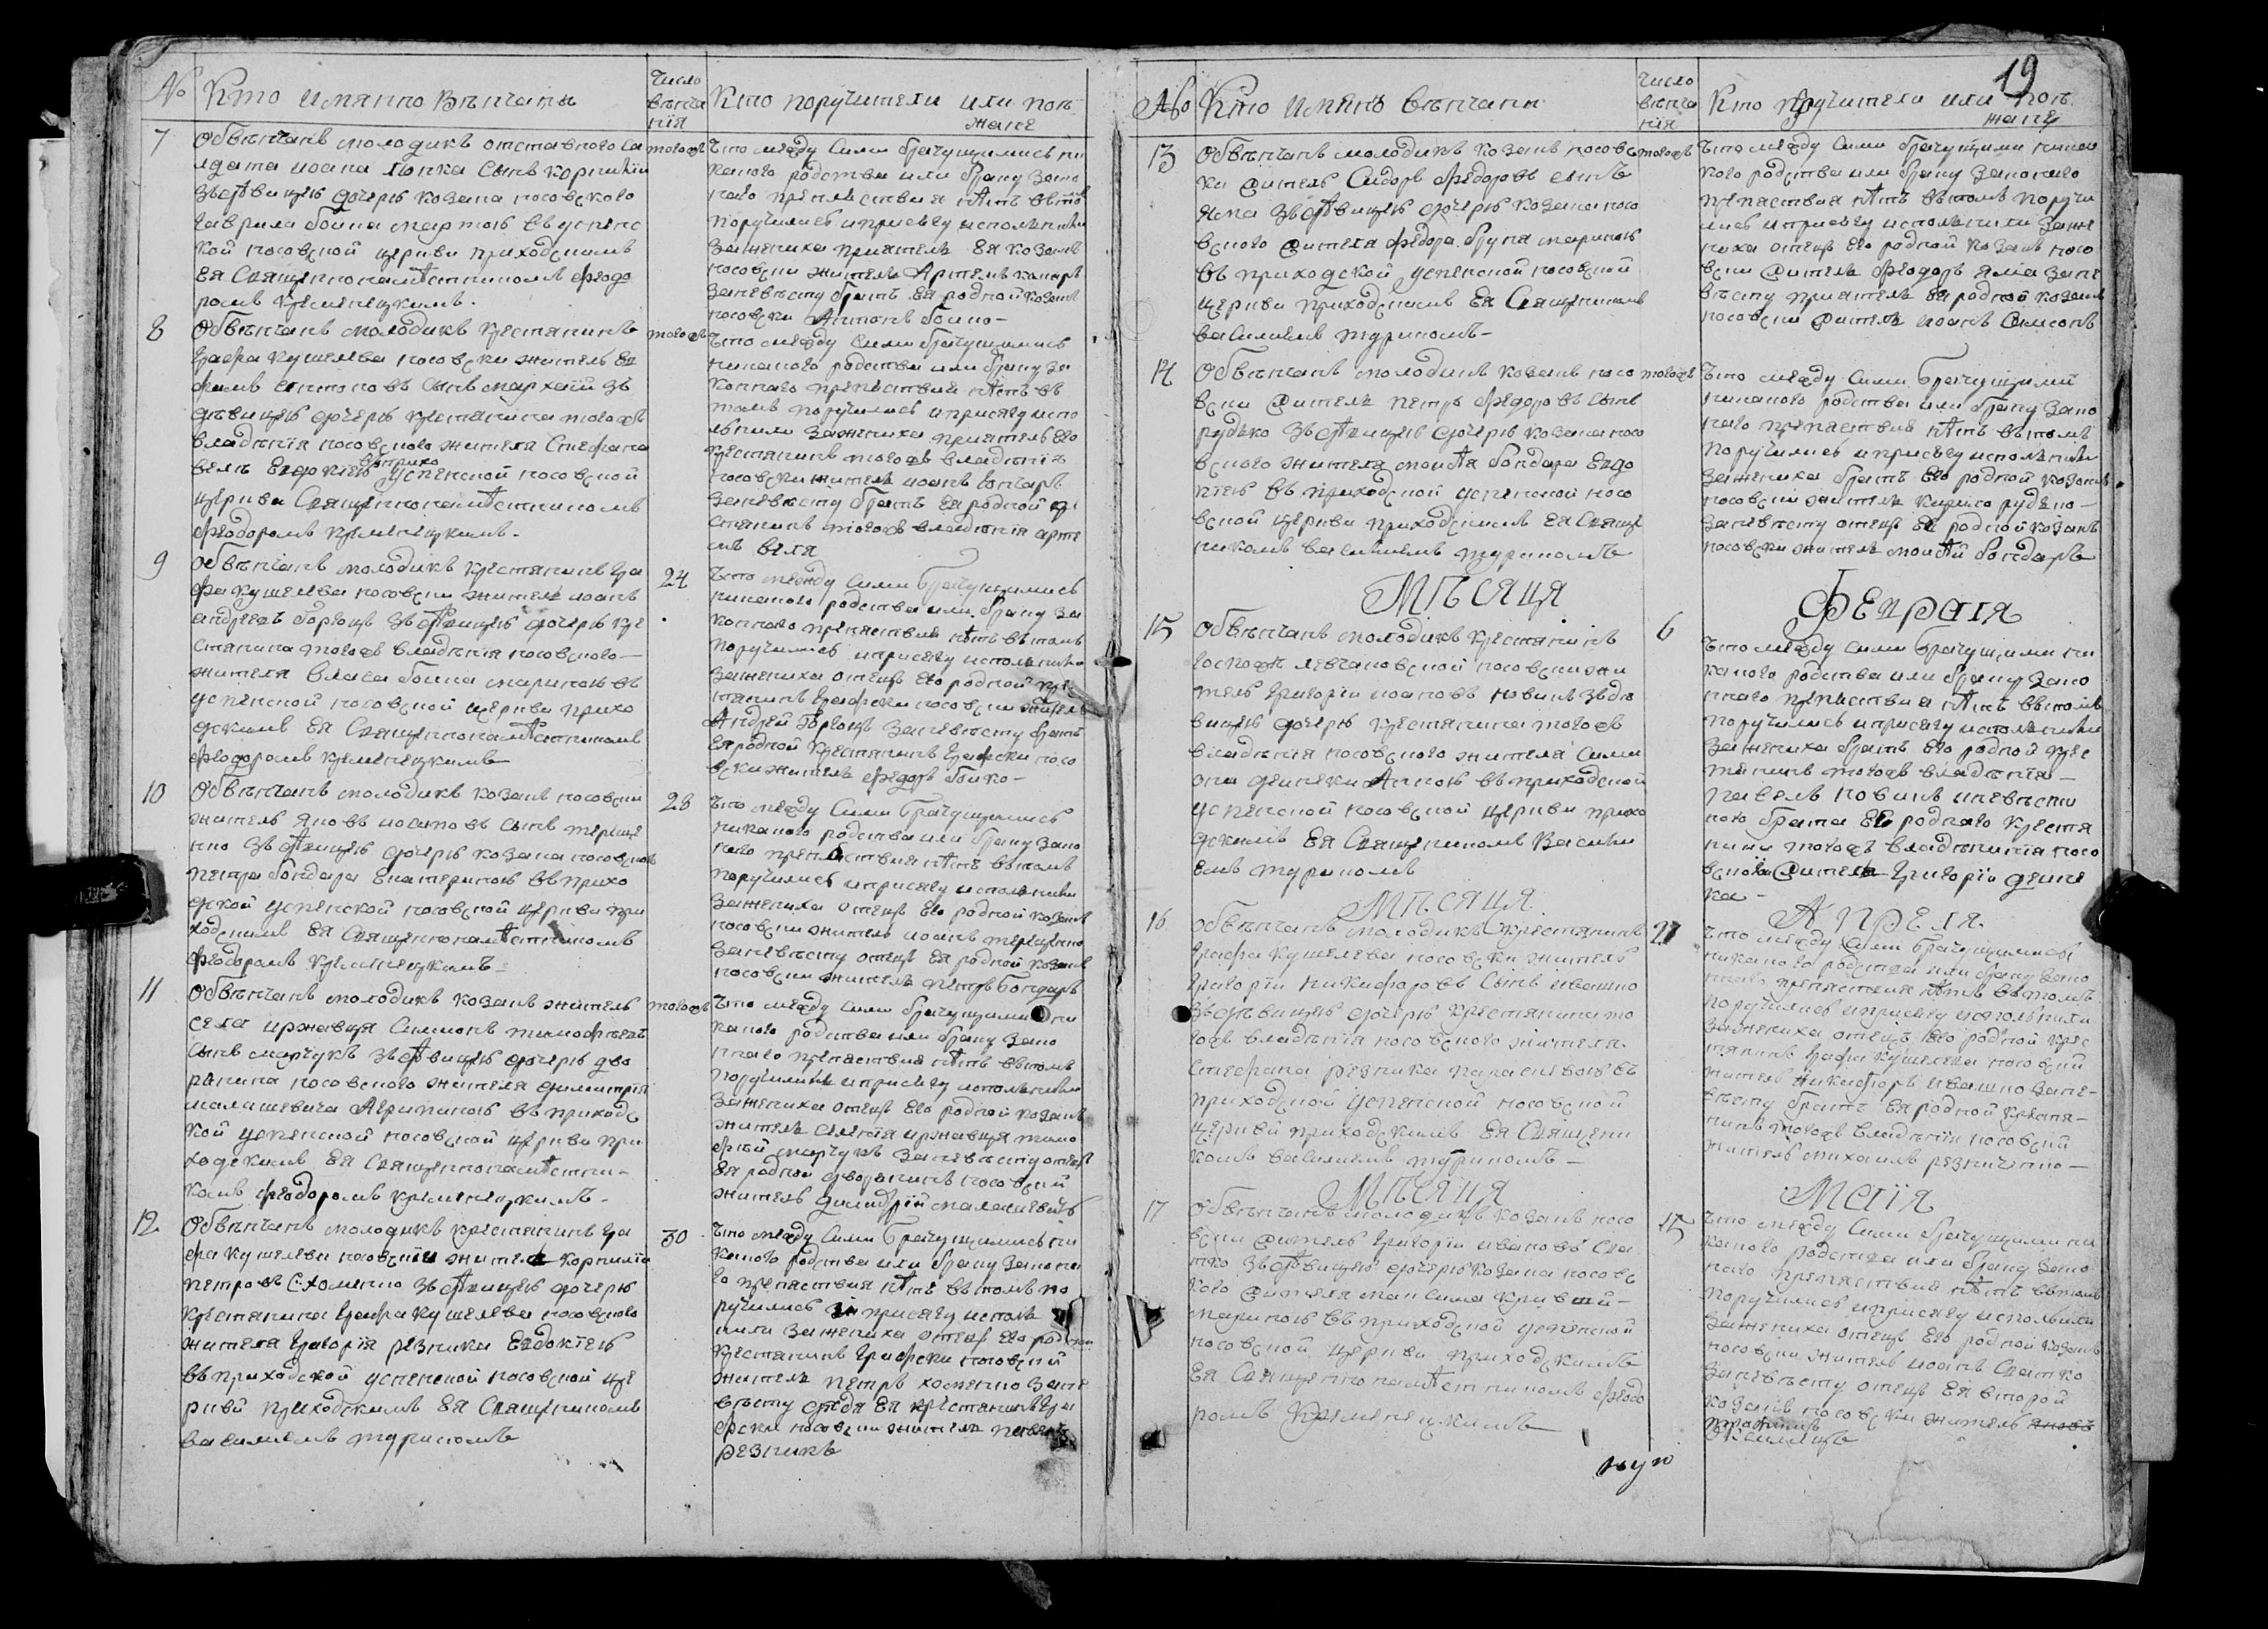 19
№ Кто имянно вѣнчаны
Число вѣнча нїя
Кто поручители или поѣ жане
7
Обвѣнчанъ молодикъ отставного са
лдата иоана сынъ корнилїи
здѣвицею дочерю козака носовского
гаврила бойка марѳою въ успенс
кой носовской церкви приходскимъ
Ея Священнонамѣстникомъ Феодо
ромъ Кременецкимъ.
тогожъ
Что между Сими брачущимись ни
каково родства или браку зако
наго препятствия нѣтъ въ томъ
поручились и присягу исполнили
Зажениха приятель Ея козакъ
носовски житель Артемъ
Заневѣсту братъ Ея родной козакъ
носовски Антонъ бойко-
8
Обвѣнчанъ молодикъ крестянинъ
графа кушелева носовски житель
сынъ зъ
дѣвицею дочерю крестянина тогожъ
владѣния носовского жителя Стефана
веля Евдокиею въ прихо
успенской носовской
церкви Священнонамѣстникомъ
Феодоромъ Кременецкимъ.
тогожъ
Что между Сими брачущимись
никакого родства или браку за
коннаго препятствия нѣтъ въ
томъ поручились и присягу испо
лнили Зажениха приятель его
крестянинъ тогожъ владѣния
носовски житель иоанъ гончаръ
Заневѣсту братъ Ея родной кре
стянинъ тогожъ владѣния арте
мъ веля
9
Обвѣнчанъ молодикъ крестянинъ гра
фа кушелева носовски житель иоанъ
андреевъ борецъ здѣвицею дочерю кре
стянина тогожъ владѣния носовского
жителя власа бойка мариною въ
успенской носовской церкви прихо
дскимъ Ея Священнонамѣстникомъ
Феодоромъ Кременецкимъ
24
Что между Сими брачущимись
никакого родства или браку за
коннаго препятствия нѣтъ въ томъ
поручились и присягу исполнили
Зажениха отецъ Его родной кре
стянинъ графски носовски житель
Андрей борецъ Заневѣсту братъ
Ея родной крестянинъ графски носо
вски житель Федоръ бойко-
10
Обвѣнчанъ молодикъ козакъ носовски
житель Яковъ иоановъ сынъ тереще
нко здѣвицею дочерю козака носовского
петра бондара Екатериною въ прихо
дской успенской носовской церкви при
ходскимъ Ея Священнонамѣстникомъ
Феодоромъ Кременецкимъ-
28
Что между Сими брачущимись
никакого родства или браку зако
наго препятствия нѣтъ въ томъ
поручились и присягу исполнили
Зажениха отецъ Его родной козакъ
носовски житель иоанъ терещенко
Заневѣсту отецъ Ея родной козакъ
носовски житель Петръ Бондаръ
11
Обвѣнчанъ молодикъ козакъ житель
села иржавця Симионъ тимофѣевъ
сынъ марчукъ здѣвицею дочерю дво
ранина носовского жителя димитрия
малашевича Агрипиною въ приходс
кой успенской носовской церкви при
ходскимъ Ея Священнонамѣстни-
комъ Феодоромъ Кременецкимъ-
тогожъ
Что между Сими брачущими ни
каково родства или браку зако
ннаго препятствия нѣтъ въ томъ
поручились и присягу исполнили
Зажениха отецъ Его родной козакъ
житель иржавця тимо
фей марчукъ Заневѣсту отецъ
Ея родной дворанинъ носовский
житель Димитрїй малашевичъ
12
Обвѣнчанъ молодикъ крестянинъ гра
фа кушелева носовский житель корнилїи
петровъ С. хоменко здѣвицею дочерю
крестянина графа кушелева носовского
жителя григорїя резника Евдокїею
въ приходской успенской носовской це
ркви приходскимъ Ея Священникомъ
василиемъ туриномъ
30
Что между Сими брачущимись ни
каково родства или браку законна
го препятствия нѣтъ въ томъ по
ручились и присягу исполн
или Зажениха отецъ Его родной
крестянинъ графски носовский
житель петръ хоменко Зане
вѣсту дядя Ея крестянинъ гра
фски носовски житель павелъ
резникъ
19
№ Кто имянно вѣнчаны
Число вѣнча нїя
Кто поручители или поѣ жане
13
Обвѣнчанъ молодикъ козакъ носовс
ки житель Сидоръ Федоровъ сынъ
яма здѣвицею дочерю козака носо
вского жителя Федора мариною
въ приходской успенской носовской
церкви приходскимъ Ея Священникомъ
василиемъ туриномъ-
тогожъ
Что между Сими брачущими никак
кого родства или браку законаго
препяствия нѣтъ въ томъ поручи
лись и присягу исполнили Заже
ниха отецъ Его родной козакъ носо
вски житель Феодоръ Яма Зане
вѣсту приятель Ея родной козакъ
носовски житель иоанъ Самсонъ
14
Обвѣнчанъ молодикъ козакъ носо
вски житель петръ Федоровъ сынъ
рудько здѣвицею дочерю козака носо
вского жителя моисѣя бондара Евдо
киею въ приходской успенской носо
вской церкви приходскимъ Ея Свяще
никомъ василиемъ туриномъ
тогожъ
Что между Сими брачущими
никакого родства или браку зако
наго препяствия нѣтъ въ томъ
поручились и присягу исполнили
Зажениха братъ Его родной козакъ
носовски житель рудко-
Заневѣсту отецъ Ея родной козакъ
носовски житель моисѣй бондаръ
Мѣсяця
Февраля
15
Обвѣнчанъ молодикъ крестянинъ
госпожи носовски жи
тель григорїи иоановъ новикъ здѣ
вицею дочерю крестянина тогожъ
владѣния носовского жителя Сими
она дейнеки Анною въ приходской
успенской носовской церкви прихо
дскимъ Ея Священникомъ Васили
емъ туриномъ
6
Что между Сими брачущими ни
каково родства или браку зако
ннаго препяствия нѣтъ въ томъ
поручились и присягу исполнили
Зажениха братъ Его родной крес
тянинъ тогожъ владѣния-
Павелъ новикъ иневѣсти
ного брата Ея роднаго крестя
нина тогожъ владѣния носо
вского жителя григорїи дейне
ка-
Мѣсяця
Апреля
16
Обвѣнчанъ молодикъ крестянинъ
графа кушелева носовски житель
григорїи никифоровъ сынъ ивашко
здѣвицею дочерю крестянина то
гожъ владѣния носовского жителя
Стефана резника параскевою въ
приходской успенской носовской
церкви приходскимъ Ея Священи
комъ василиемъ туриномъ-
27
Что между Сими брачущимись
никакого родства или браку зако
ннаго препятствия нѣтъ въ томъ
поручились и присягу исполнили
Зажениха отецъ Его родной крес
тянинъ графа кушелева носовски
житель никифоръ ивашко Зане-
вѣсту братъ Ея родной крестя-
нинъ тогожъ владѣния носовски
житель михаилъ резниченко-
Мѣсяця
Маїя
17
Обвѣнчанъ молодикъ козакъ носо
вски житель григорїи ивановъ Сва
тко здѣвицею дочерю козака носовс
кого жителя максима
мариною въ приходской успенской
носовской церкви приходскимъ
Ея Священнонамѣстникомъ Феодо
ромъ Кременецкимъ
15
Что между Сими брачущими ни
каково родства или браку зако
наго препятствия нѣтъ въ томъ
поручились и присягу исполнили
Зажениха отецъ Его родной козакъ
носовски житель иоанъ Сватко
Заневѣсту отецъ Ея второй
козакъ носовски житель